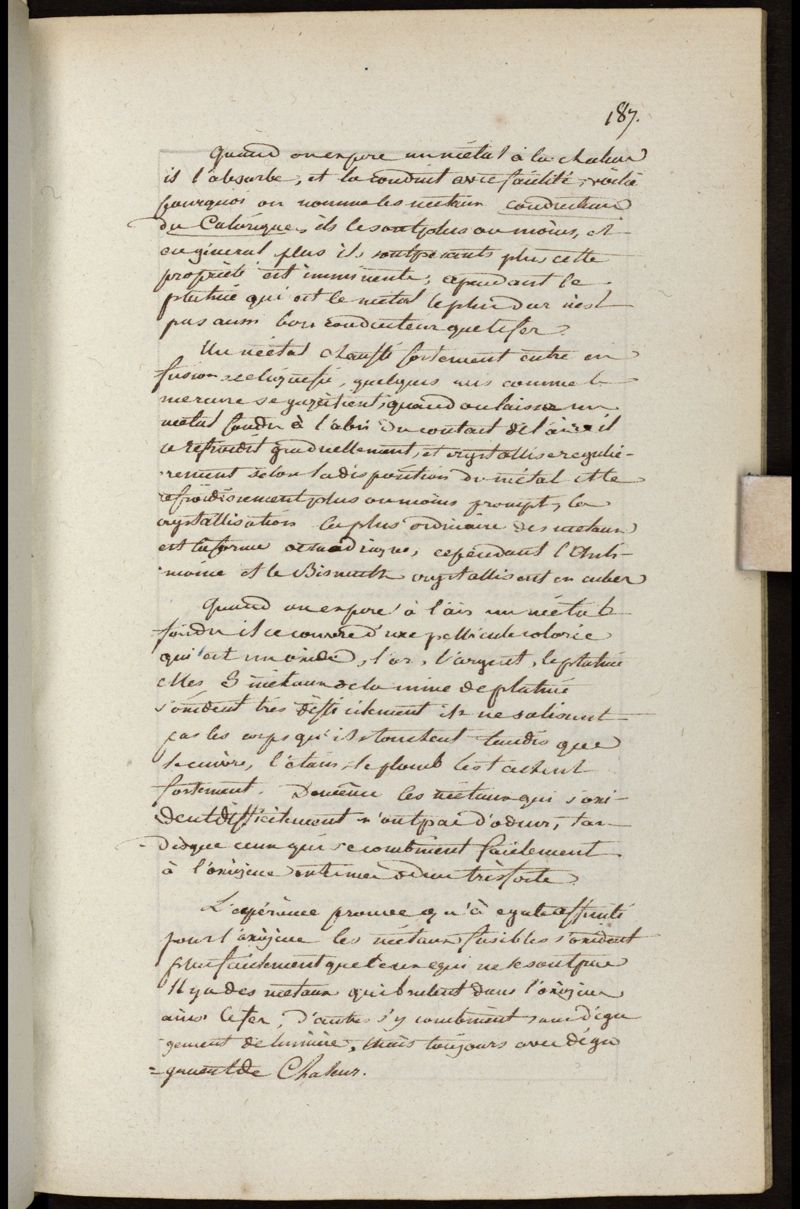 187.
Quand on expose un métal à la chaleur
il l'absorbe, et la conduit avec facilité, voila
pourquoi on nomme les métaux conducteurs
du Calorique, ils le sont plus ou moins, et
en général plus ils sont pesants plus cette
propriété est imminente; cependant le
platine qui est le métal le plus dur n'est
pas aussi bon conducteur que le fer.
Un métal chauffé fortement entre en
fusion se liquefie, quelques uns comme le
mercure se gazéifient, quand on laisse un
métal fondu à l'abri du contact de l'air il
se refroidit graduellement, et crystallise regulie-
-rement selon la disposition du métal et le
refroidissement plus ou moins prompt, la
crystallisation la plus ordinaire des metaux
est la forme octaedrique, cependant l'Anti-
-moine et le Bismuth crystallisent en cubes
Quand on expose à l'air un métal
fondu il se couvre d'une pellicule colorée
qui est un oxide, l'or, l'argent, le platine
et les 3 métaux de la mine de platine
s'oxident très difficilement ils ne salissent
pas les corps qu'ils touchent tandis que
le cuivre, l'étain, le plomb les tachent
fortement. De même les métaux qui s'oxi-
-dent difficilement n'ont pas d'odeur, tan-
-disque ceux qui se combinent facilement
à l'oxigene ont une odeur très forte
L'expérience prouve qu'à egale affinité
pour l'oxigene les métaux fusibles s'oxident
plus facilement que ceux qui ne le sont pas
Il y a des metaux qui brulent dans l'oxigene
ainsi le fer, d'autres s'y combinent sans déga
-gement de lumière, mais toujours avec déga
=gement de Chaleur.